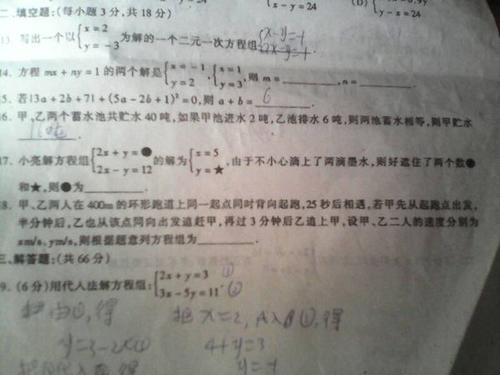 y-x=24
y-x=24
二.填空题:(每小题3分,共18分)
13.写出一个以{x=2 y=-3为解的一个二元一次方程组
14.方程 mx+ny=1的两个解是{x=-1 y=2,{x=1 y=3,则 m=____,n=____.
15.若|3a+2b+7|+(5a-2b+1)²=0,则 a+b= 6 .
16.甲、乙两个蓄水池共贮水40吨,如果甲池进水2吨,乙池排水6吨,则两池蓄水相等,则甲贮水
16吨.
17.小亮解方程组{2x+y=● 2x-y=12 的解为{x=5 y=★,由于不小心滴上了两滴墨水,则好遮住了两个数●
和★,则●为____.
18.甲、乙两人在400m的环形跑道上同一起点同时背向起跑,25秒后相遇,若甲先从起跑点出发,
半分钟后,乙也从该点同向出发追赶甲,再过3分钟后乙追上甲,设甲、乙二人的速度分别为
xm/s、ym/s,则根据题意列方程组为____.
三.解答题:(共66分)
19.(6分)用代入法解方程组:{2x+y=3 ① 3x-5y=11 ②
由①,得 把x=2,代入①,得
y=3-2x 4+y=3
y=-1